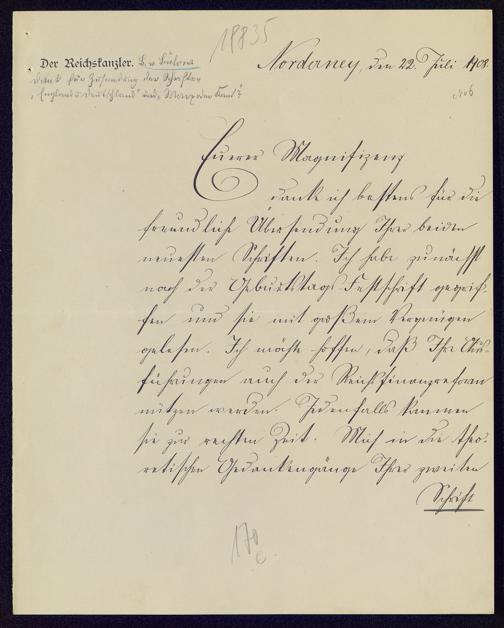 18835
Der Reichskanzler. B. v. Bülow
Norderney, den 22. Juli 1908.
dankt für Zusendung der Schriften
"England u. Deutschland" und
Euerer Magnifizenz
danke ich bestens für die
freundliche Übersendung Ihrer beiden
neuesten Schriften. Ich habe zunächst
nach der Geburtstags-Festschrift gegrif-
fen und sie mit großem Vergnügen
gelesen. Ich möchte hoffen, daß Ihre Aus-
führungen auch der Reichsfinanzreform
nützen werden. Jedenfalls kommen
sie zur rechten Zeit. Mich in die theo-
retischen Gedankengänge Ihrer zweiten
Schrift
170